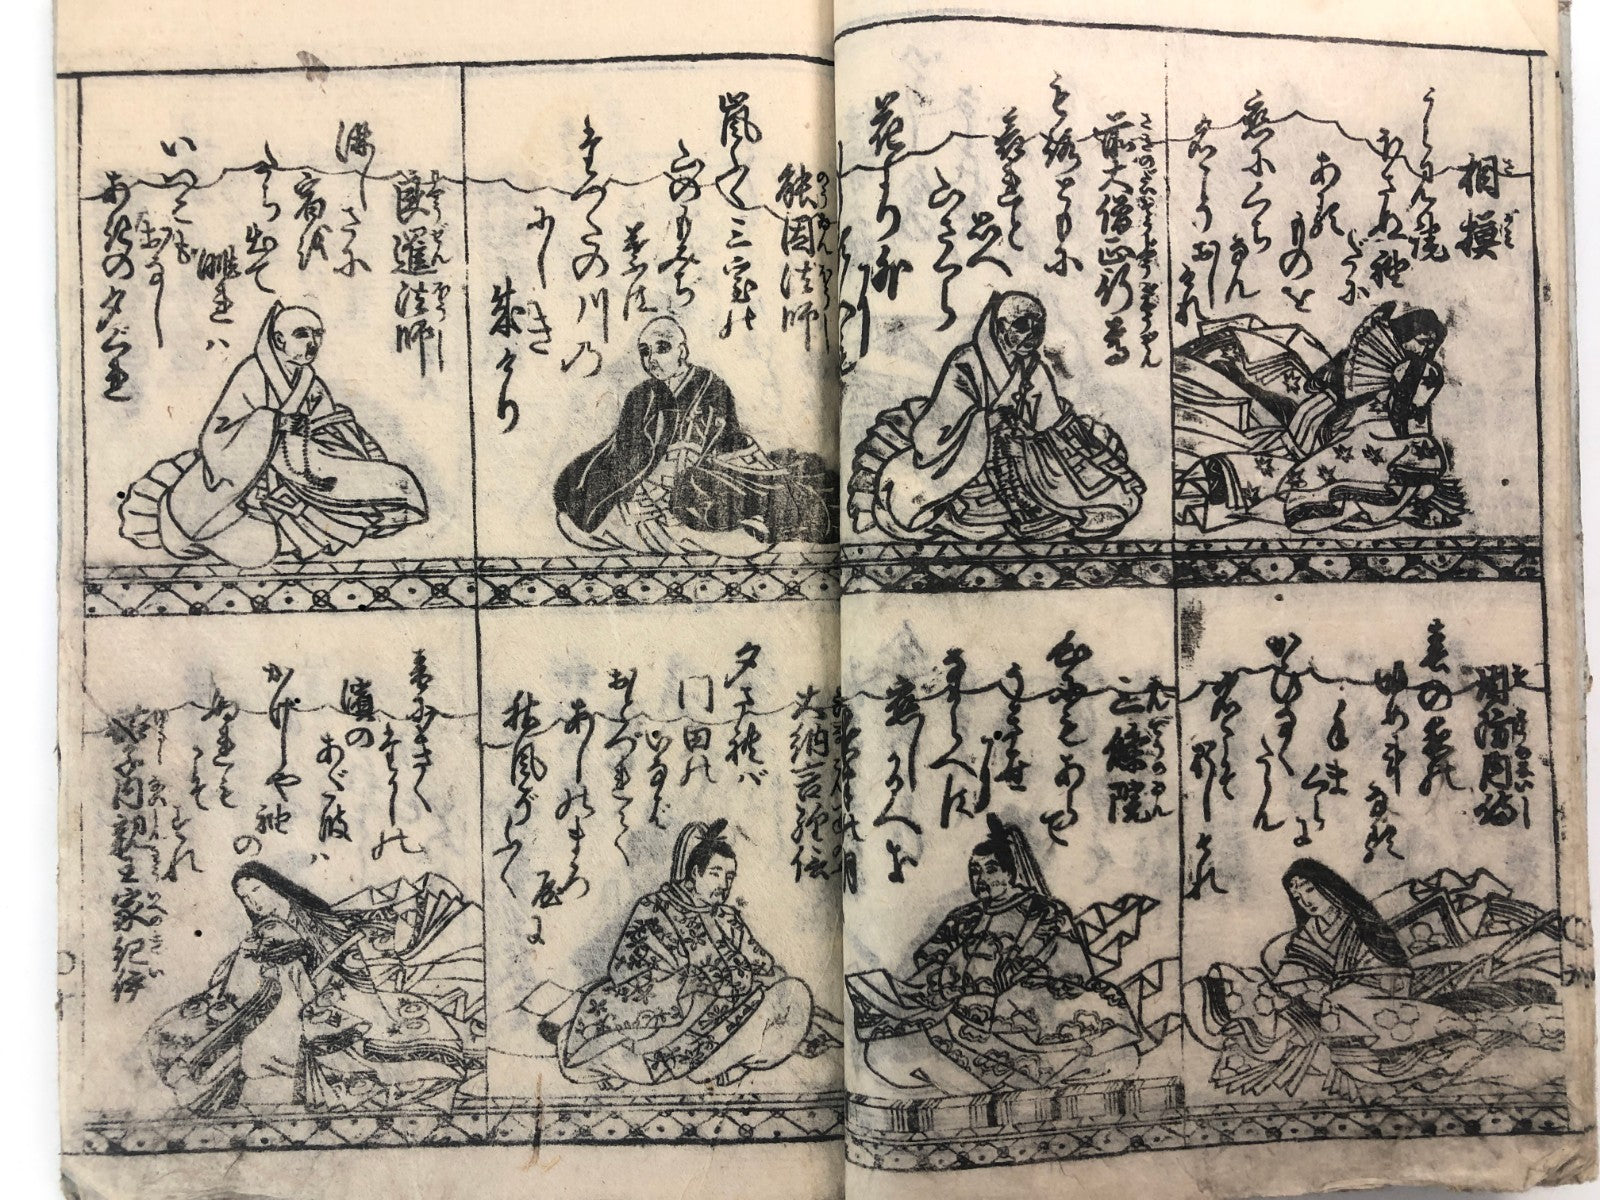 相模
うらみ侘
ほさぬ袖
だに
ある
ものを
恋にくち
なん
名こそおし
けれ
前大僧正行尊
もろともに
あはれと
思へ
山さくら
花より外
周防内侍
春の夜の
夢
手枕に
かひなく
たゝん
名こそおしけれ
三條院
心にもあらで
うき世
に
ながらへば
恋しかるべき
夜半の月
能因法師
嵐ふく三室の
山のもみぢ
葉は
たつたの川の
にしき
成けり
良暹法師
淋しさに
宿を
たち出て
詠れハ
いづくも
おなし
あきの夕ぐれ
大納言經信
夕されバ
門田の
いなば
おとづれて
あしのまろ
屋に
秋風ぞふく
祐子内親王家紀伊
音にきく
たかしの
濱の
あだ波ハ
かけじや袖の
ぬれも
こそ
すれ